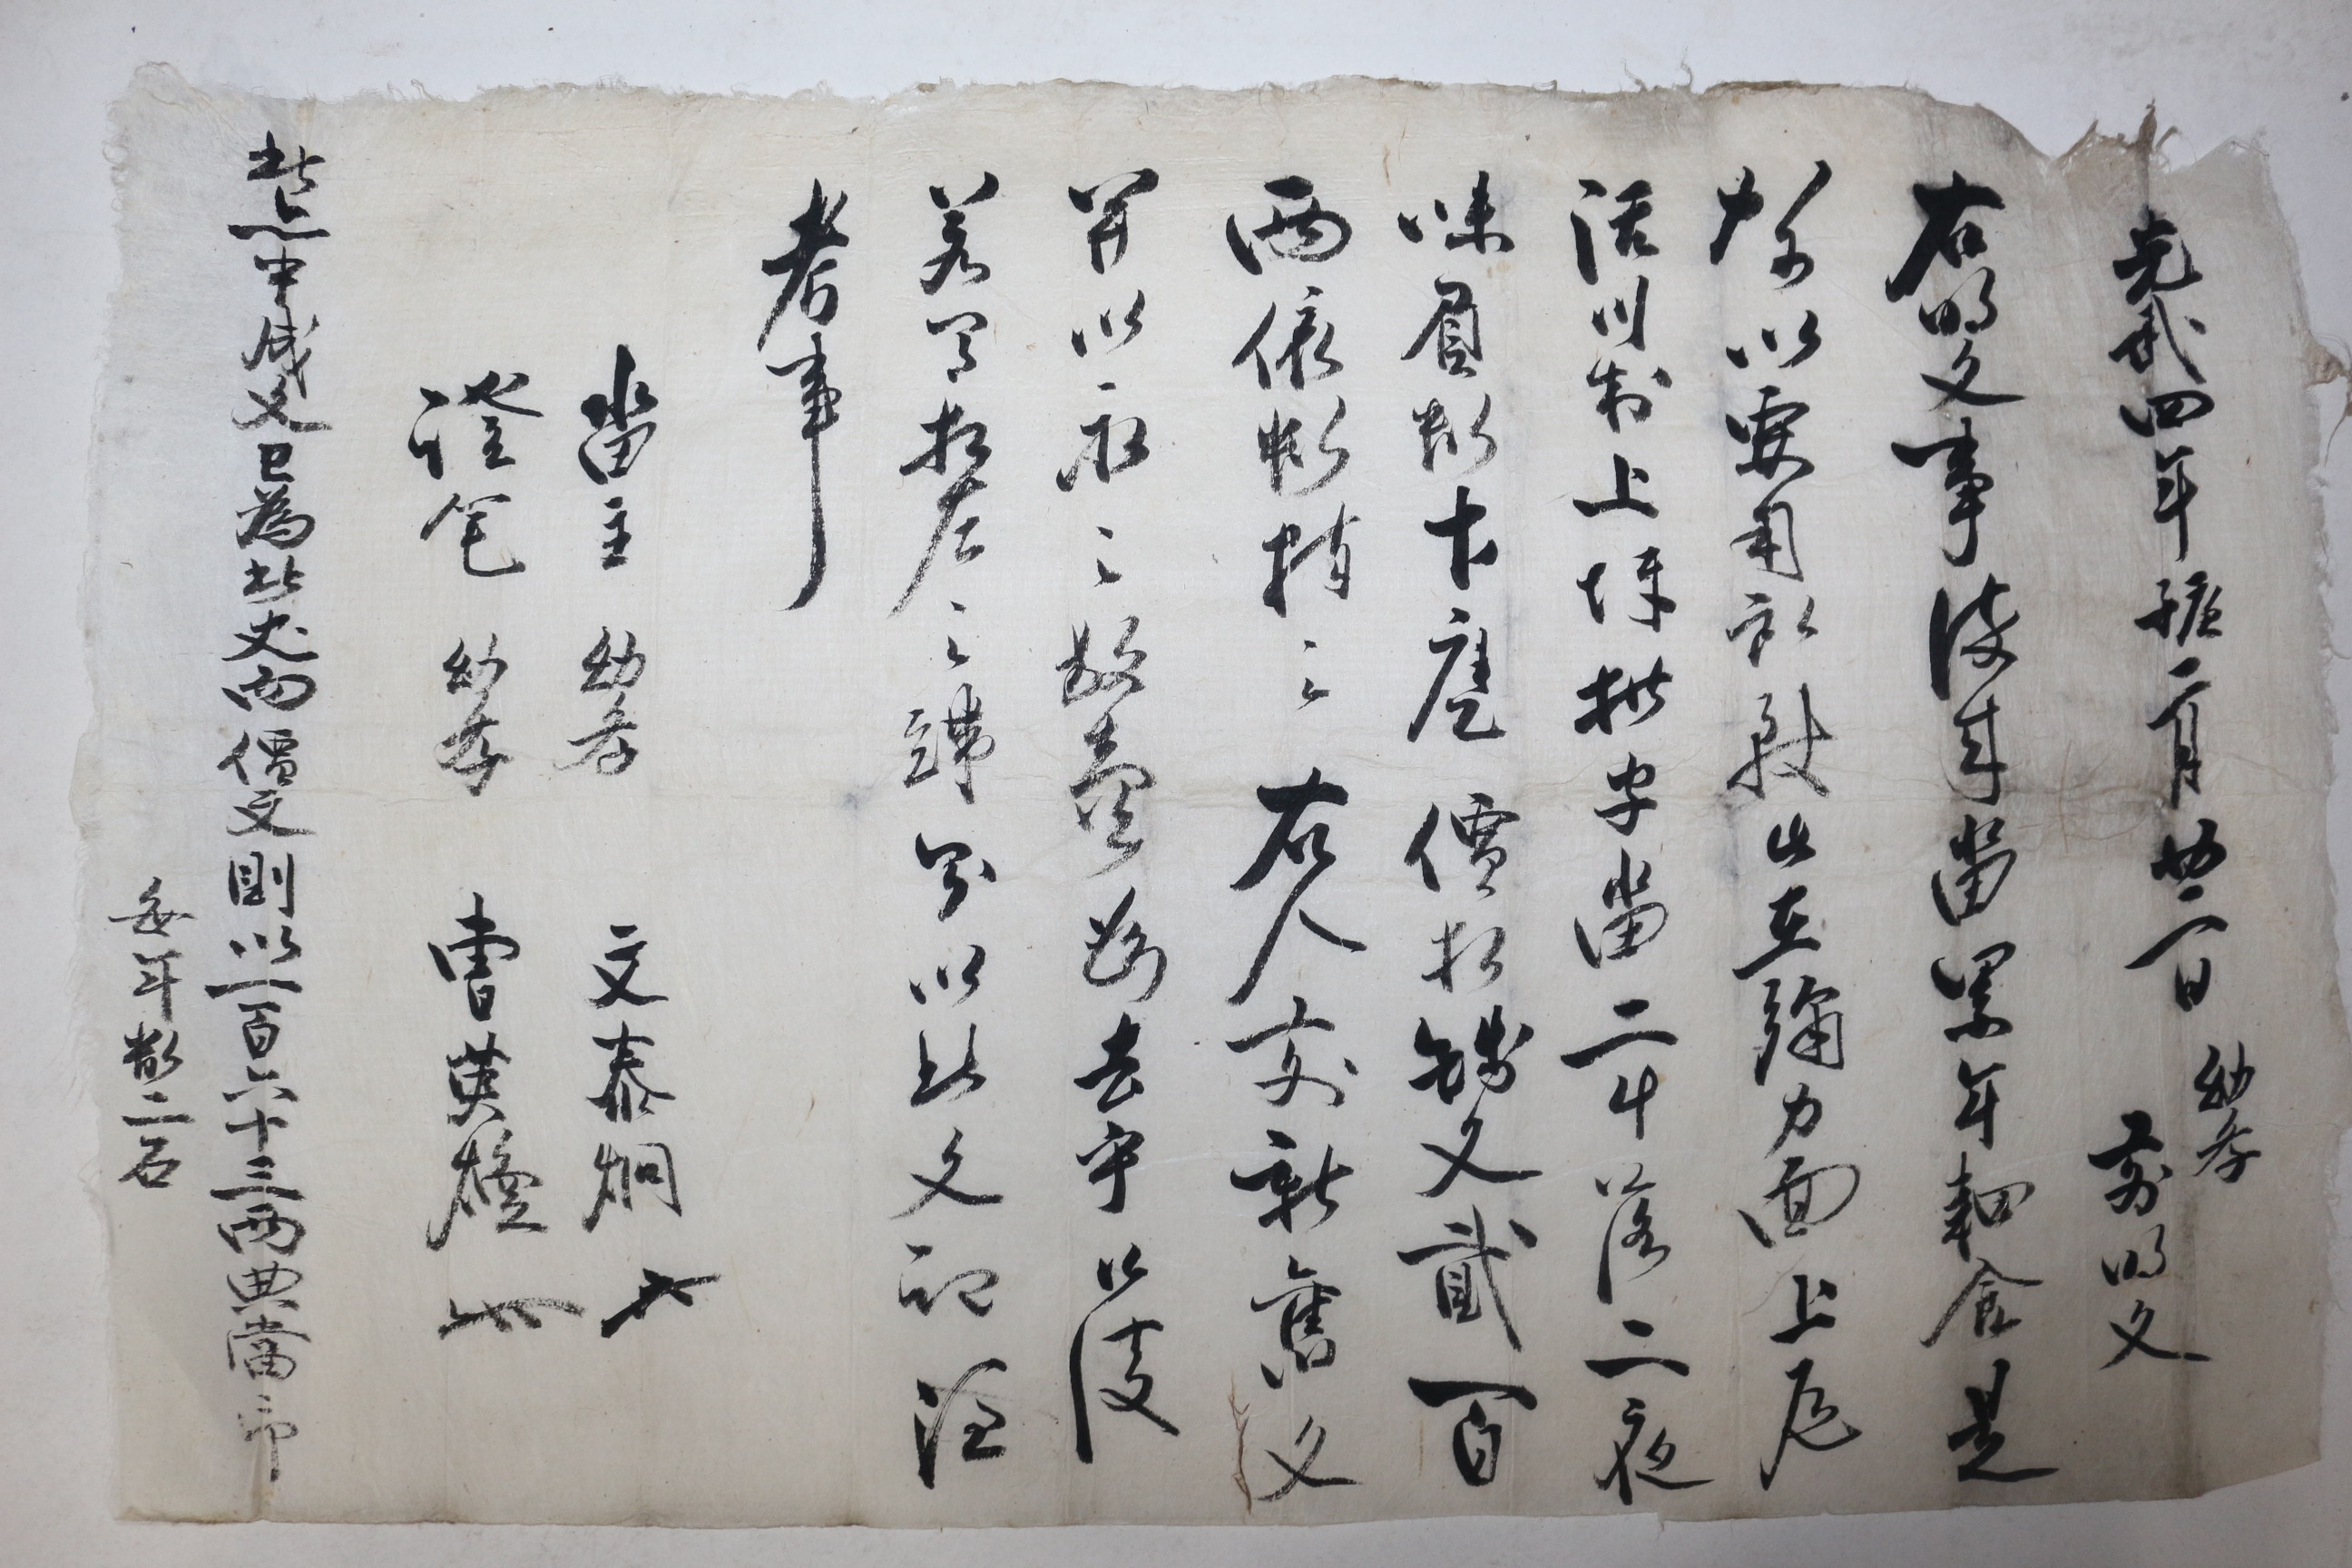 光武四年庚子二月廿一日 幼學 前明文
右明文事段自畓累年耕食是
如乎以要用所致出在彌力面上尼
活川村上坪拱字畓二斗落二夜
味負數十庫價折錢文貳百
兩依數捧上右人前新舊文
幷以永永放賣爲去乎以後
若有相左之端則以此文記憑
考事
畓主 幼學 文泰炯
證筆 幼學 曺英
此亦中成文已爲此丈而價文則以一百六十三兩典當印
每年數二石